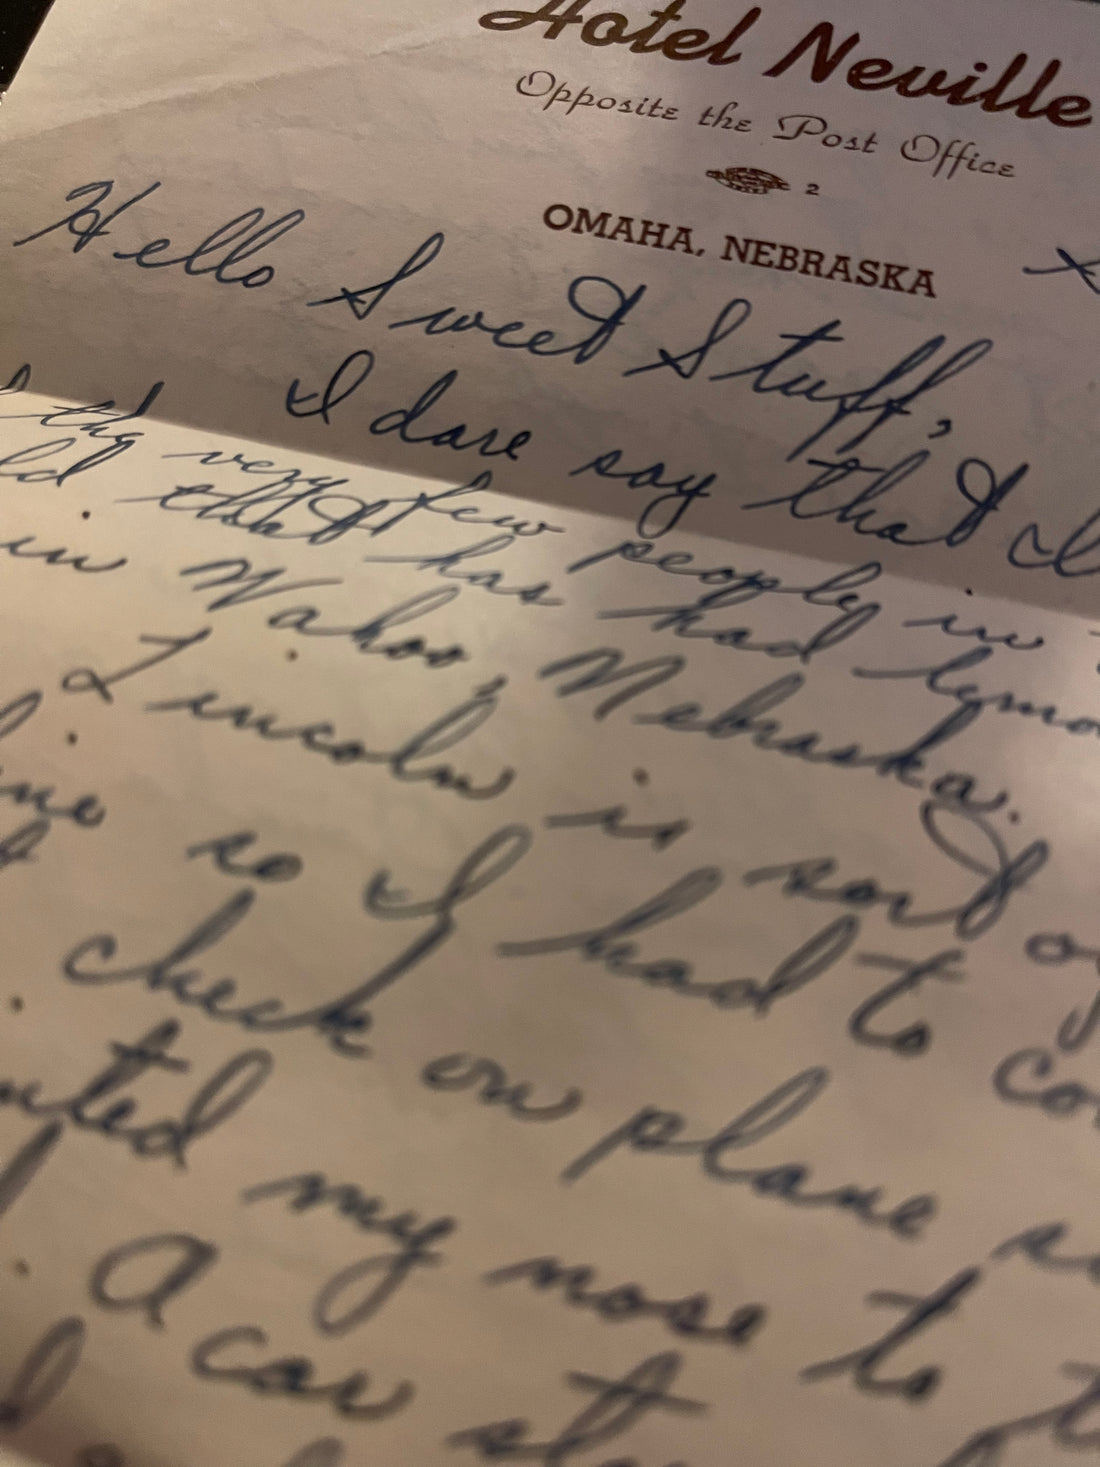 Hotel Neville
Opposite the Post Office
2
OMAHA, NEBRASKA
Hello Sweet Stuff,
I dare say that I
the very few people in
that has had lemo
in Wahoo, Nebraska.
Lincoln is sort of
so I had to co
check on plane
my nose to
A car